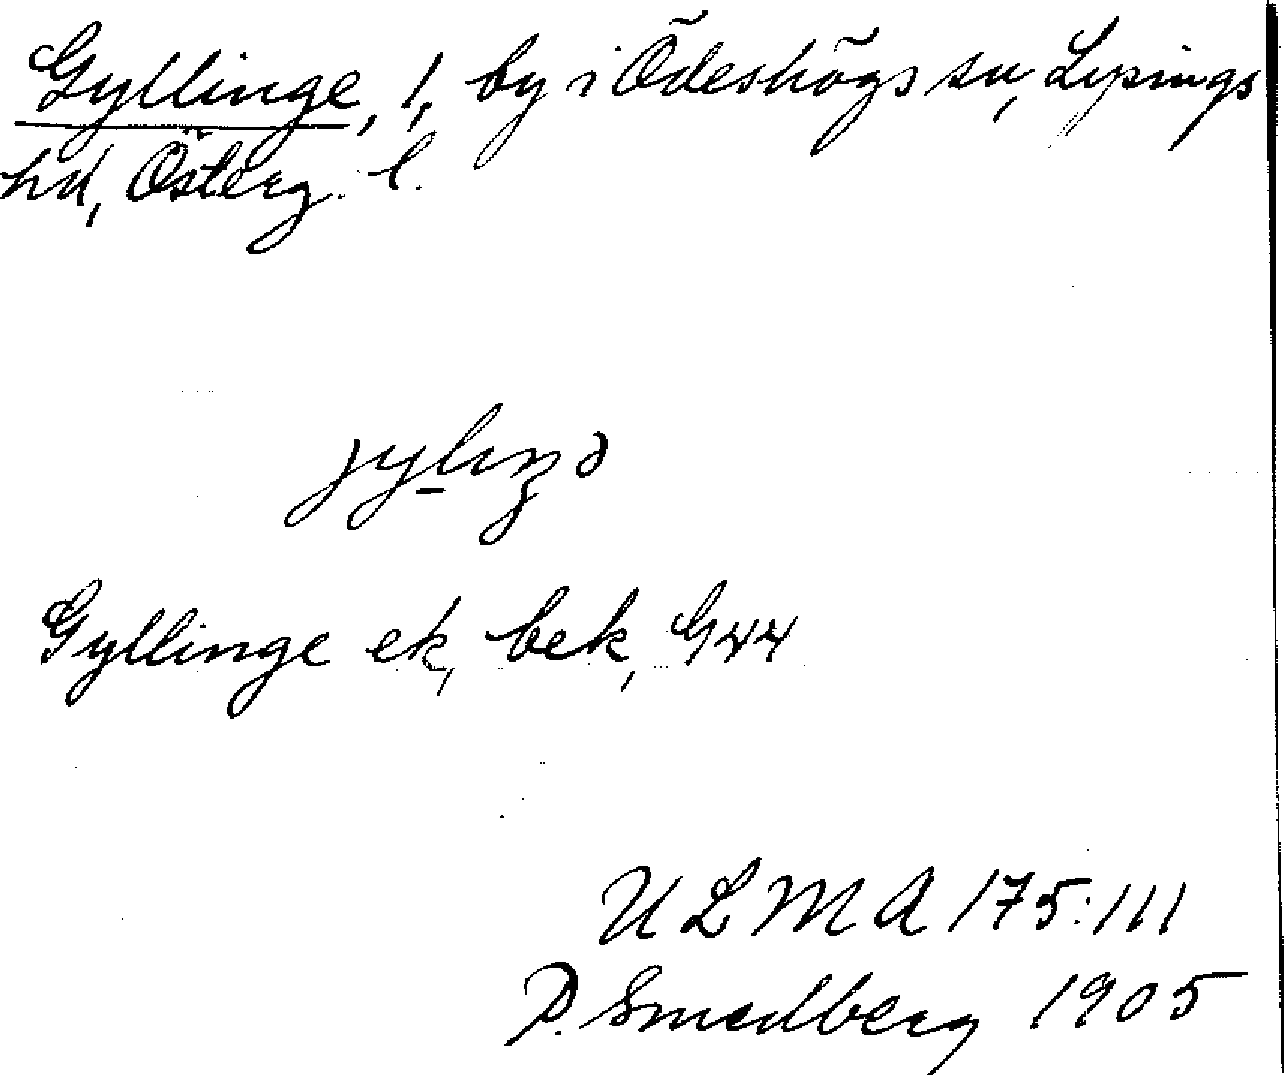 Gyllinge, 1, by i Ödeshögs sn, Lysings
hd, Österg. l.
Gyllinge ek, bek,
ULMA 175:111
P. Smedberg 1905